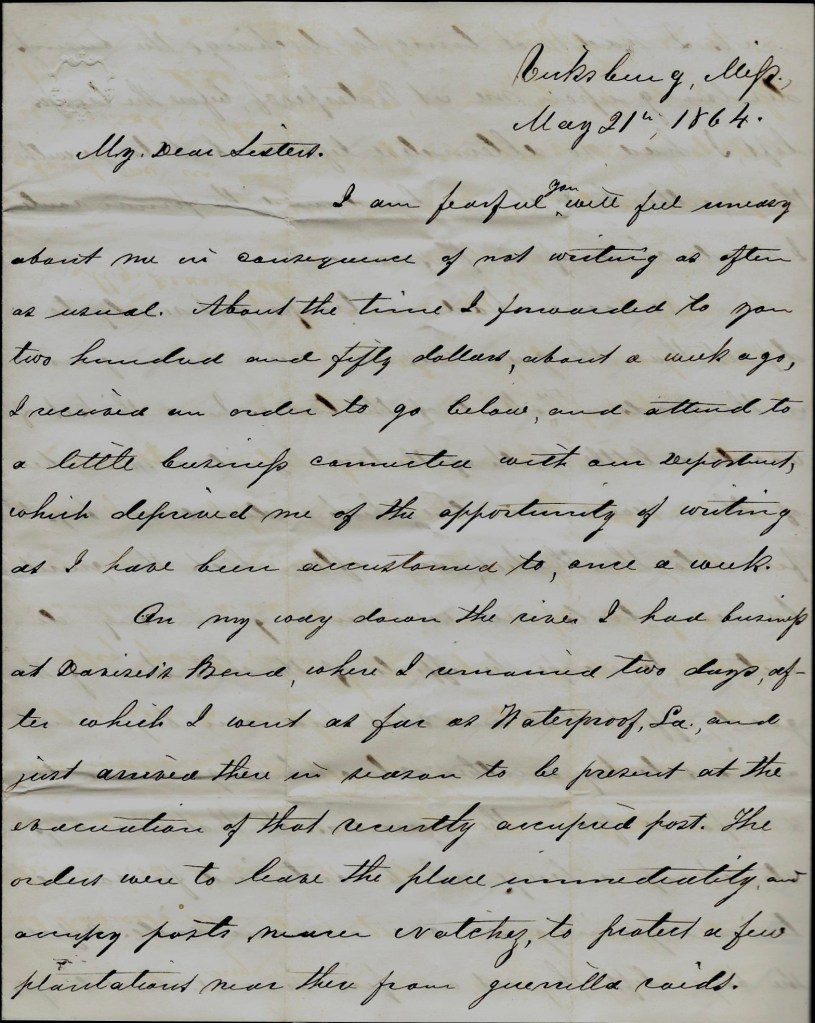 Vicksburg, Miss.,
May 21st, 1864.
My Dear Sisters.
I am fearful you will feel uneasy
about me in consequence of not writing as often
as usual. About the time I forwarded to you
two hundred and fifty dollars, about a week ago,
I received an order to go below, and attend to
a little business connected with our Department,
which deprived me of the opportunity of writing
as I have been accustomed to, once a week.
On my way down the river I had business
at Davises's Bend, where I remained two days, af-
ter which I went as far as Waterproof, La., and
just arrived there in season to be present at the
evacuation of that recently occupied post. The
orders were to leave the place immediately and
occupy posts nearer Natchez, to protect a few
plantations near there from guerrilla raids.